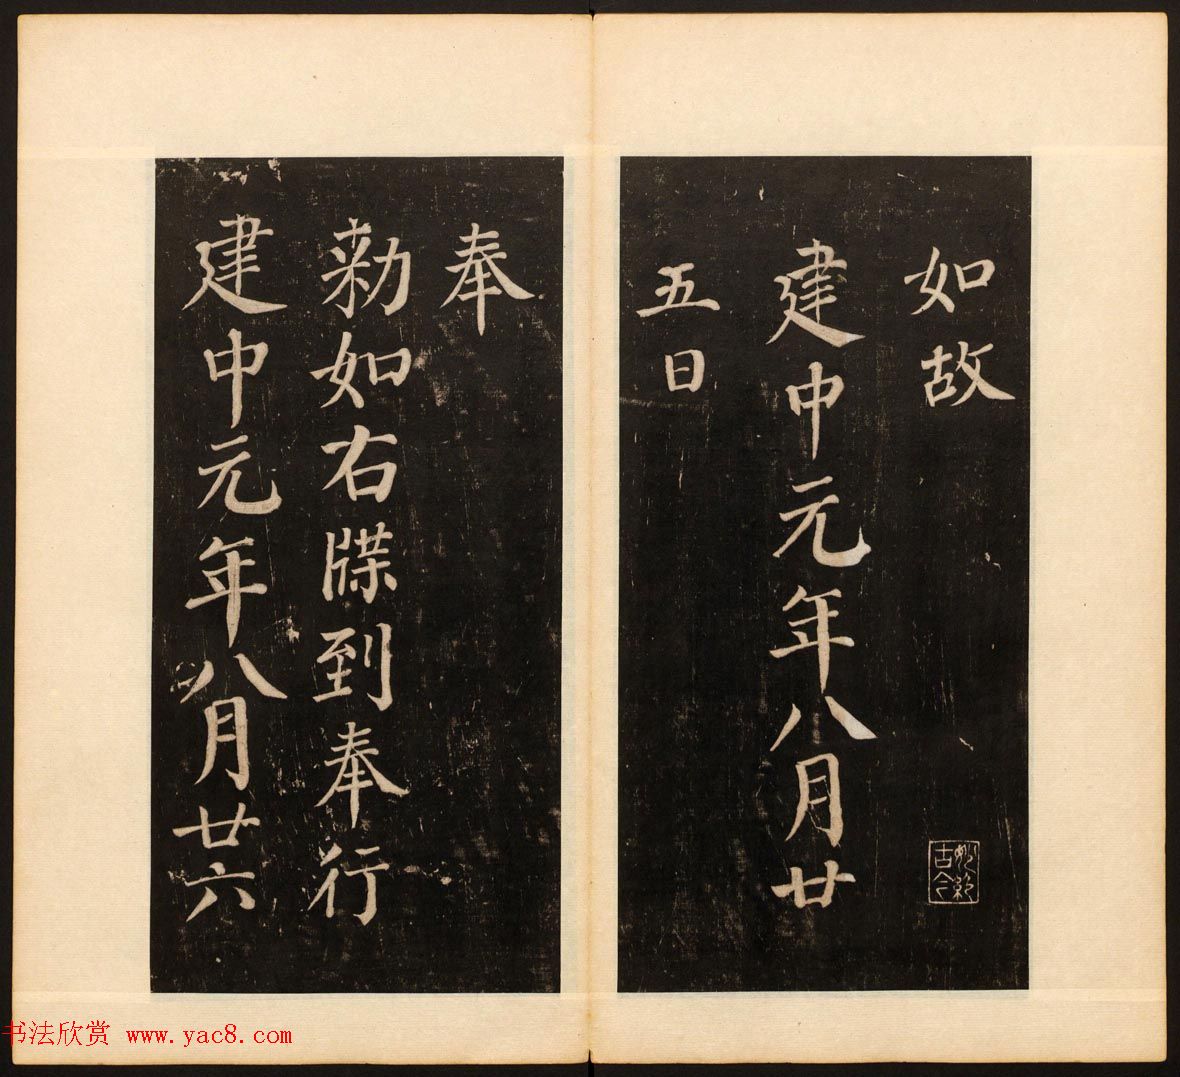 如故
建中元年八月廿
五日
奉
勑如右牒到奉行
建中元年八月廿六
书法欣赏 www.yac8.com